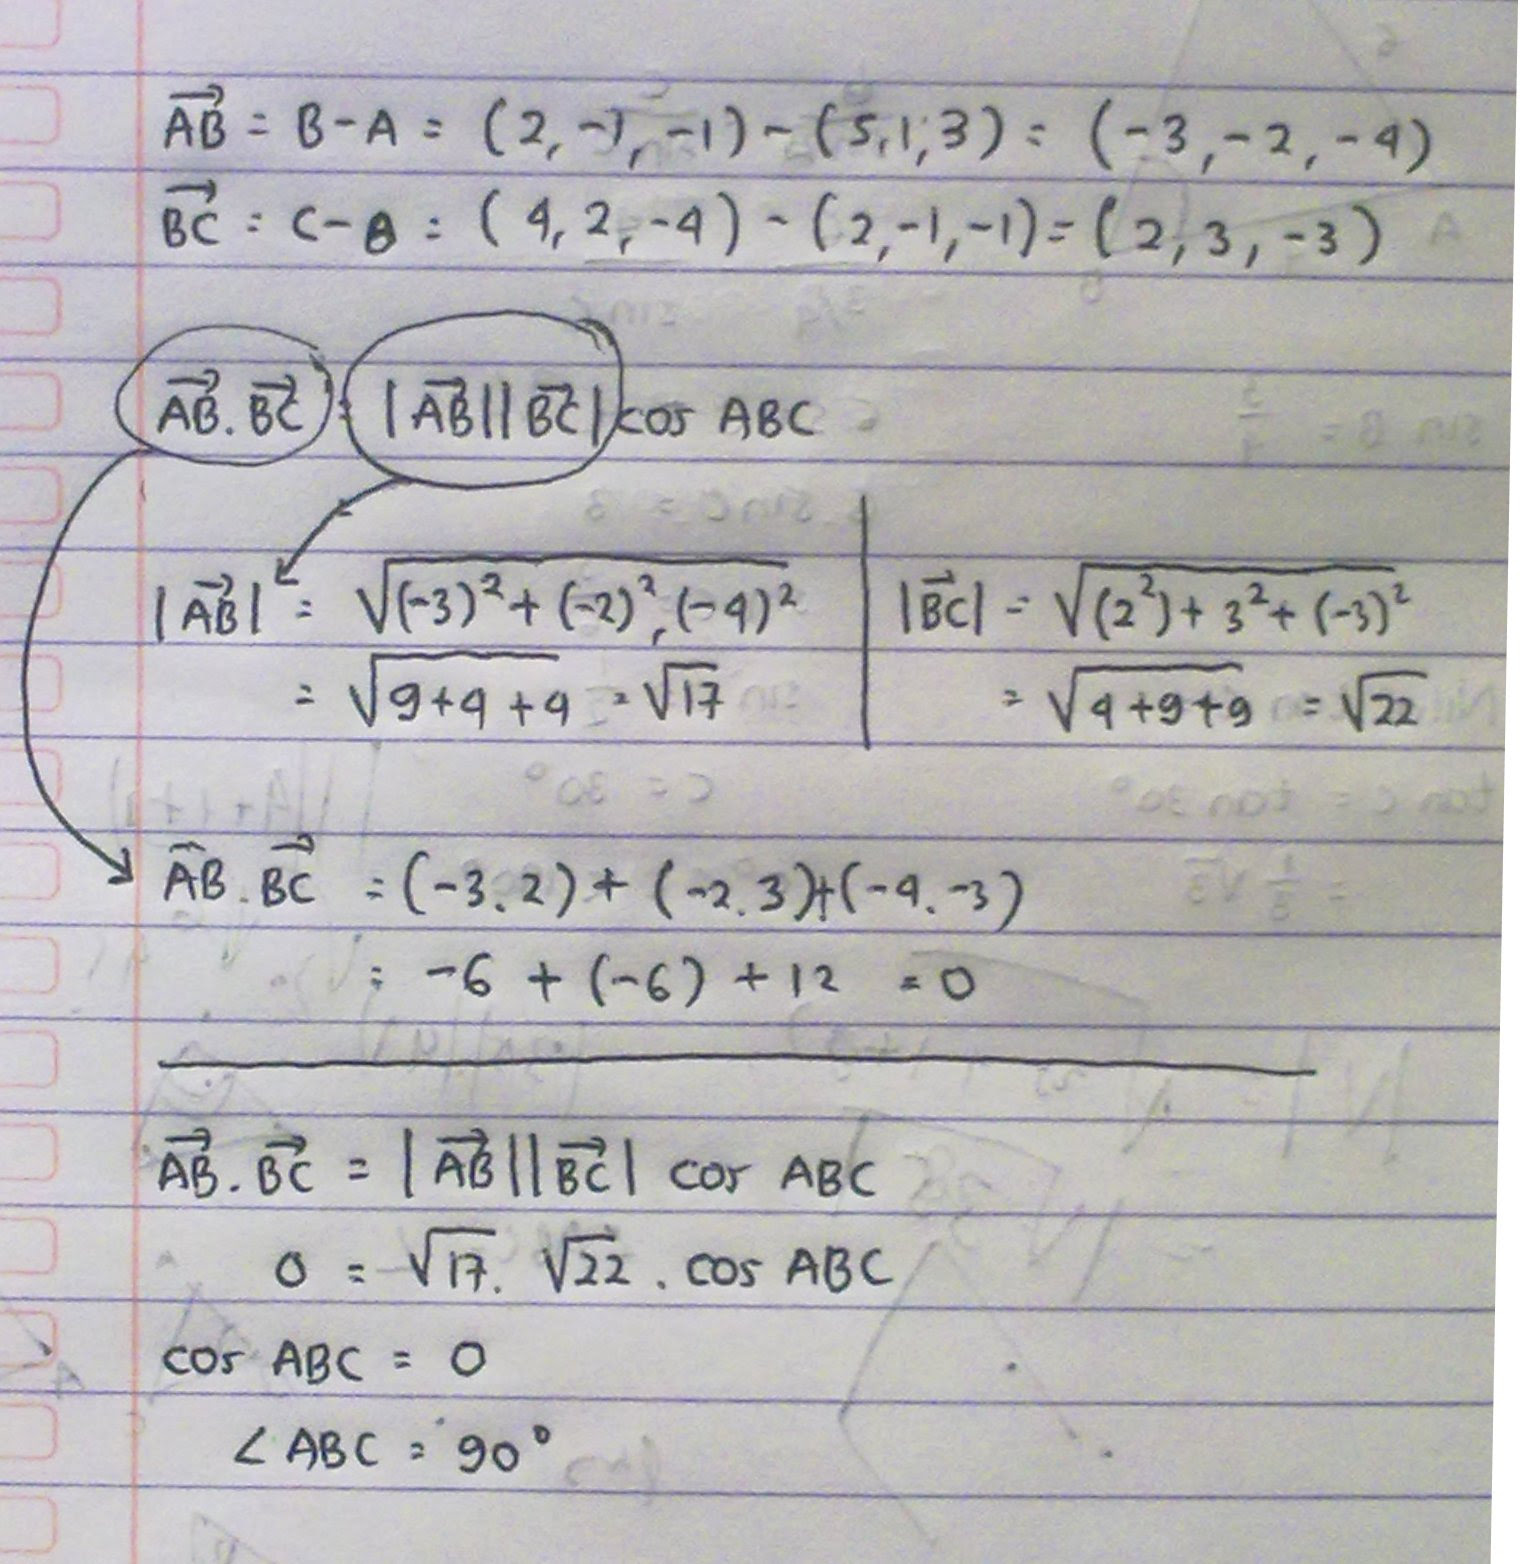 AB = B - A = (2, -1, -1) - (5, 1, 3) = (-3, -2, -4)
BC = C - B = (4, 2, -4) - (2, -1, -1) = (2, 3, -3)
AB . BC = |AB||BC| cos ABC
|AB| = √(-3)² + (-2)², (-4)² |BC| = √(2²) + 3² + (-3)²
= √9+4+4 = √17 = √4+9+9 = √22
AB . BC = (-3.2) + (-2.3)+(-4.-3)
= -6 + (-6) + 12 = 0
AB . BC = |AB||BC| cos ABC
0 = √17. √22 . cos ABC
cos ABC = 0
∠ABC = 90°